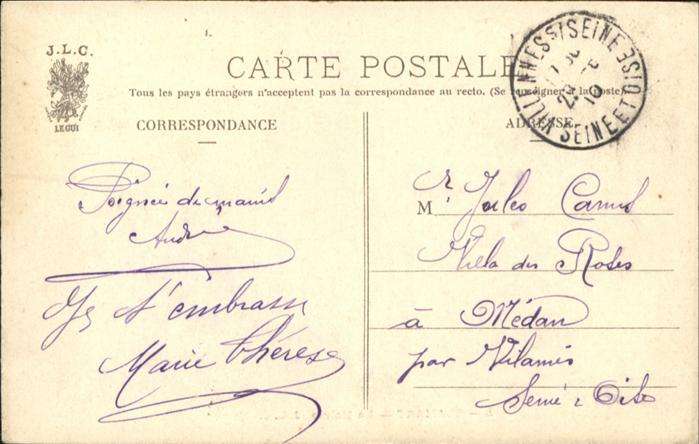 J.L.C.
LE GUI
CARTE POSTALE
Tous les pays étrangers n'acceptent pas la correspondance au recto. (Se renseigner à la Poste)
CORRESPONDANCE
Poignée de mains
André
Je t'embrasse
Marie Thérèse
ADRESSE
M r Jules Camus
Villa des Roses
à Médan
par Vilaines
Seine & Oise
VILLENNES S/ SEINE
SEINE ET OISE